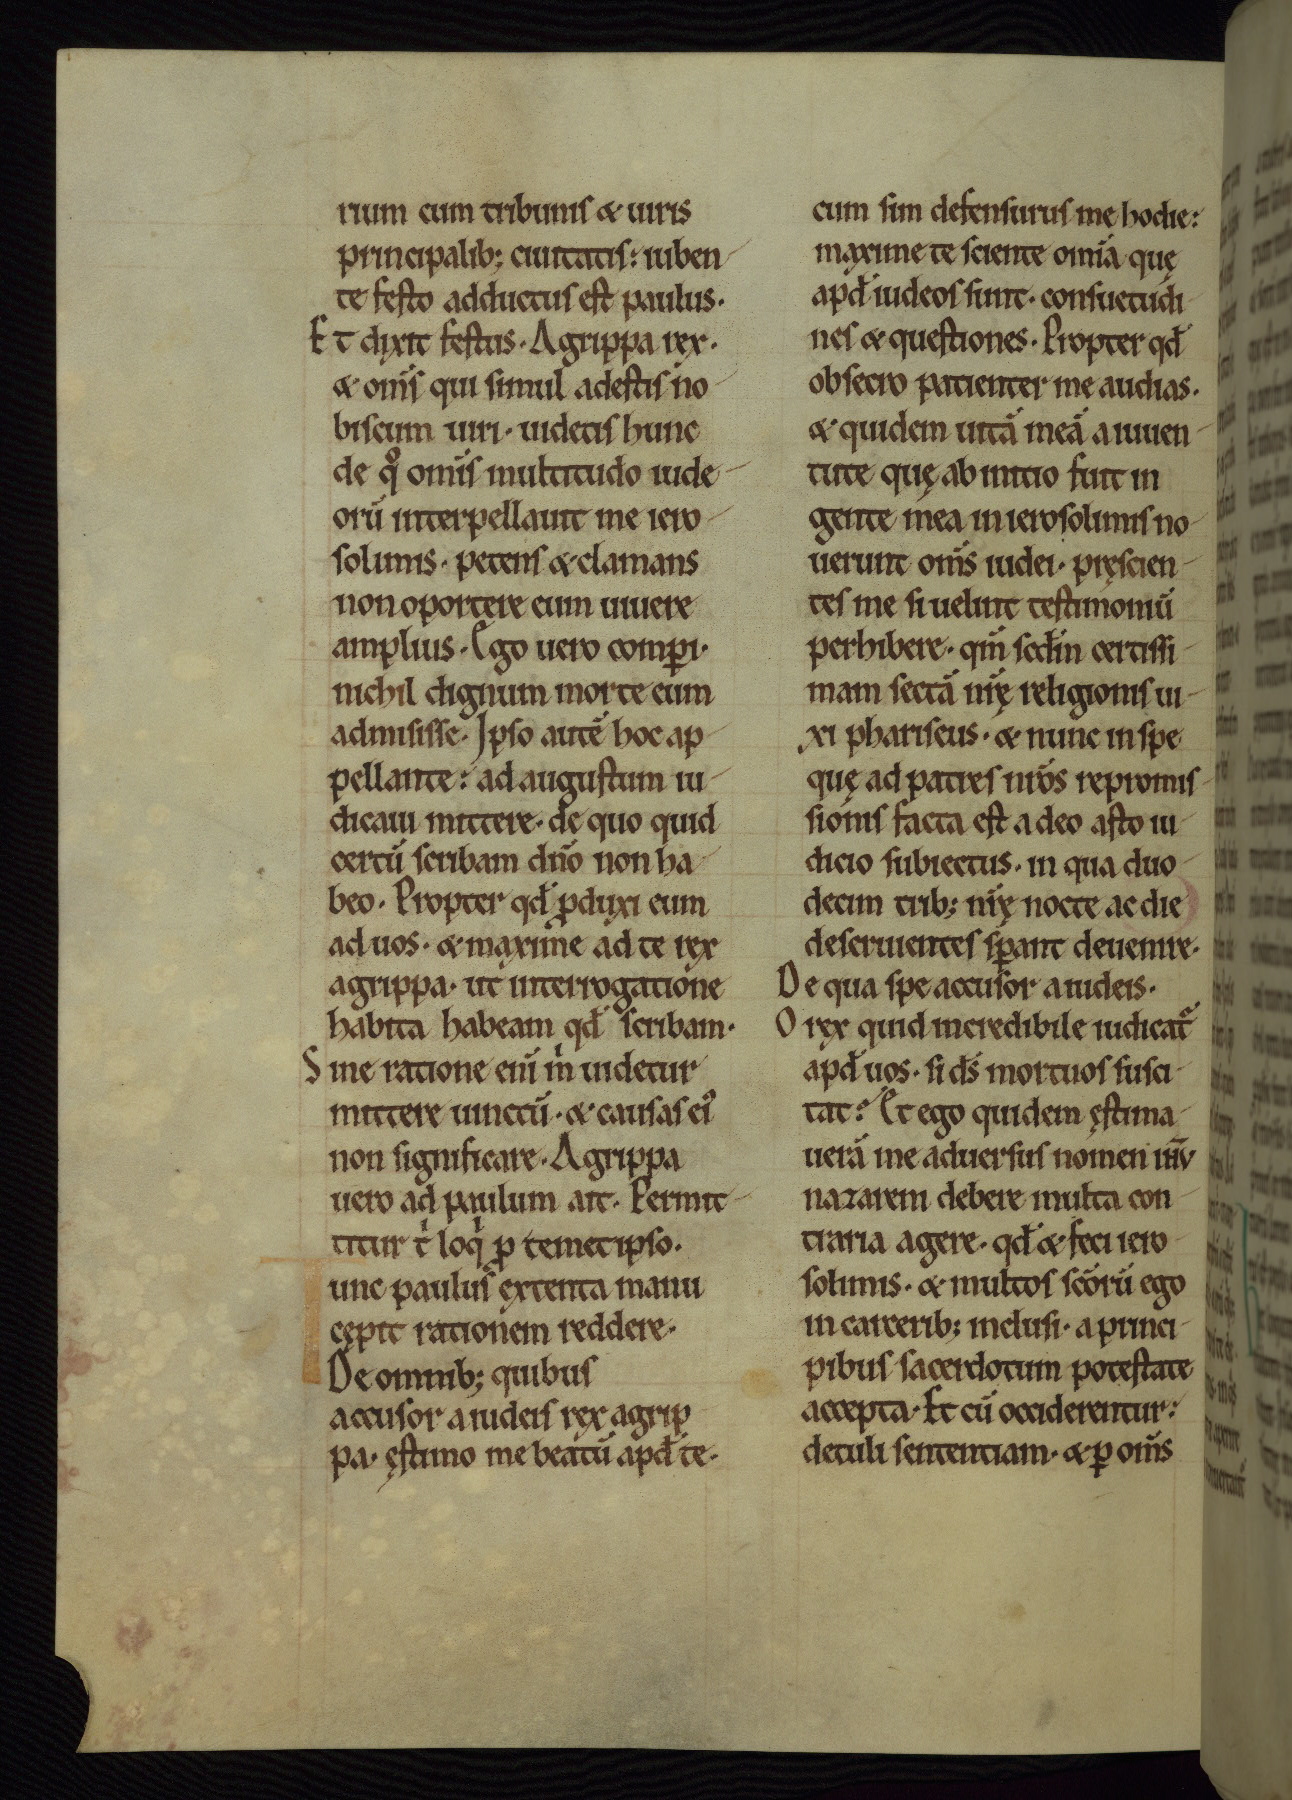 rium cum tribunis & uiris
principalib; ciuitatis: iuben-
te festo adductus est paulus.
Et dixit festus. Agrippa rex.
& om̄s qui simul adestis no-
biscum uiri. uidetis hunc
de qͦ om̄is multitudo iude-
orū interpellauit me iero-
solimis. petens & clamans
non oportere eum uiuere
amplius. Ego uero comp̱i.
nichil dignum morte eum
admisisse. Ipso autē hoc ap-
pellante: ad augustum iu-
dicaui mittere. de quo quid
certū scribam dn̄o non ha-
beo. Propter qđ ꝓduxi eum
ad uos. & maxime ad te rex
agrippa. ut interrogatione
habita habeam qđ scribam.
Sine ratione eni̅ m̍ uidetur
mittere uinctū. & causas ei᾿
non significare. Agrippa
uero ad paulum ait. Permit-
titur t̍ loq̍ ꝓ temetipso.
Tunc paulus extenta manu
cępit rationem reddere.
De omnib; quibus
accusor a iudeis rex agrip
pa. ęstimo me beatū apđ te.
cum sim defensurus me hodie:
maxime te sciente omīa quę
apđ iudeos sunt. consuetudi-
nes & questiones. Propter qđ
obsecro patienter me audias.
& quidem uitā meā a iuuen-
tute quę ab initio fuit in
gente mea in ierosolimis no-
uerunt om̄s iudei. pręscien-
tes me si uelint testimoniū
perhibere. qm̄ scđm certissi-
mam sectā nr̄ę religionis ui-
xi phariseus. & nunc in spe
quę ad patres nr̄os repromis-
sionis facta est a deo asto iu-
dicio subiectus. in qua duo-
decim trib; nr̄ę nocte ac die
deseruientes sꝑant deuenire.
De qua spe accusor a iudeis.
O rex quid incredibile iudicat᾿
apđ uos. si ds̄ mortuos susci-
tat? Et ego quidem ęstima-
uerā me aduersus nomen ih̄u
nazareni debere multa con-
traria agere. qđ & feci iero-
solimis. & multos sc̄orū ego
in carcerib; inclusi. a princi-
pibus sacerdotum potestate
accepta. Et cū occiderentur:
detuli sententiam. & ꝑ om̄s